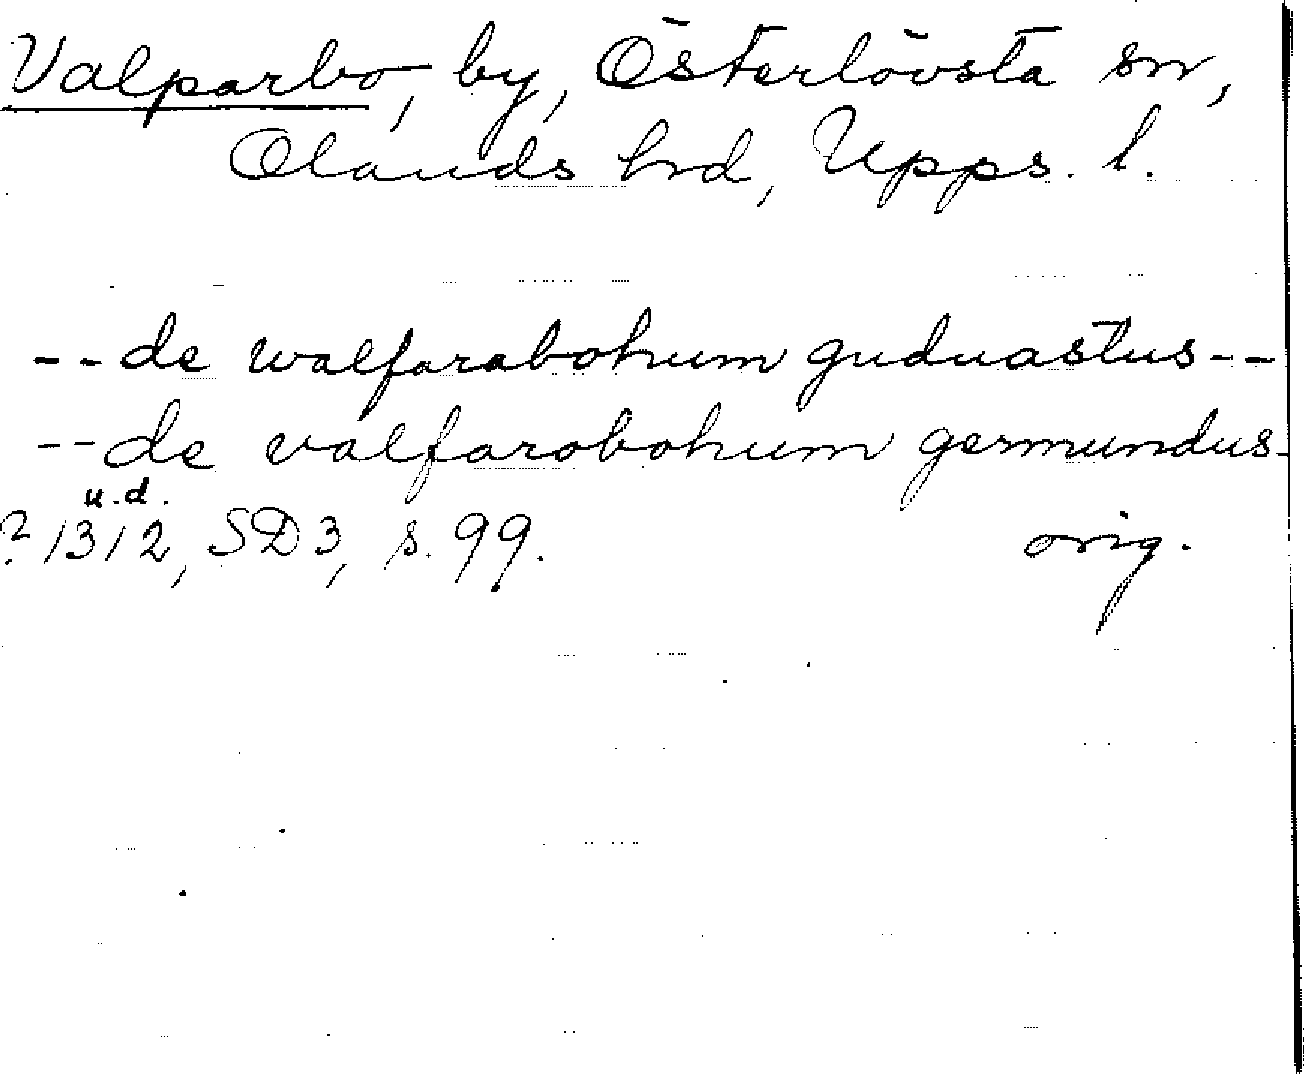 Valparbo, by, Österlövsta sn,
Olands hrd, Upps. l.
-- de walfarabohum guduastus --
-- de valfarobohum germundus -
u.d.
? 1312, SD3, s. 99. orig.